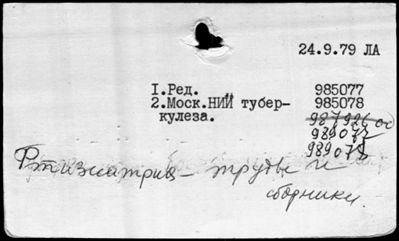 24.9.79 ЛА
1.Ред. 985077
2.Моск.НИИ тубер- 985078
кулеза. 987926 оо
989072
989073
Фтизиатрия - труды и
сборники.